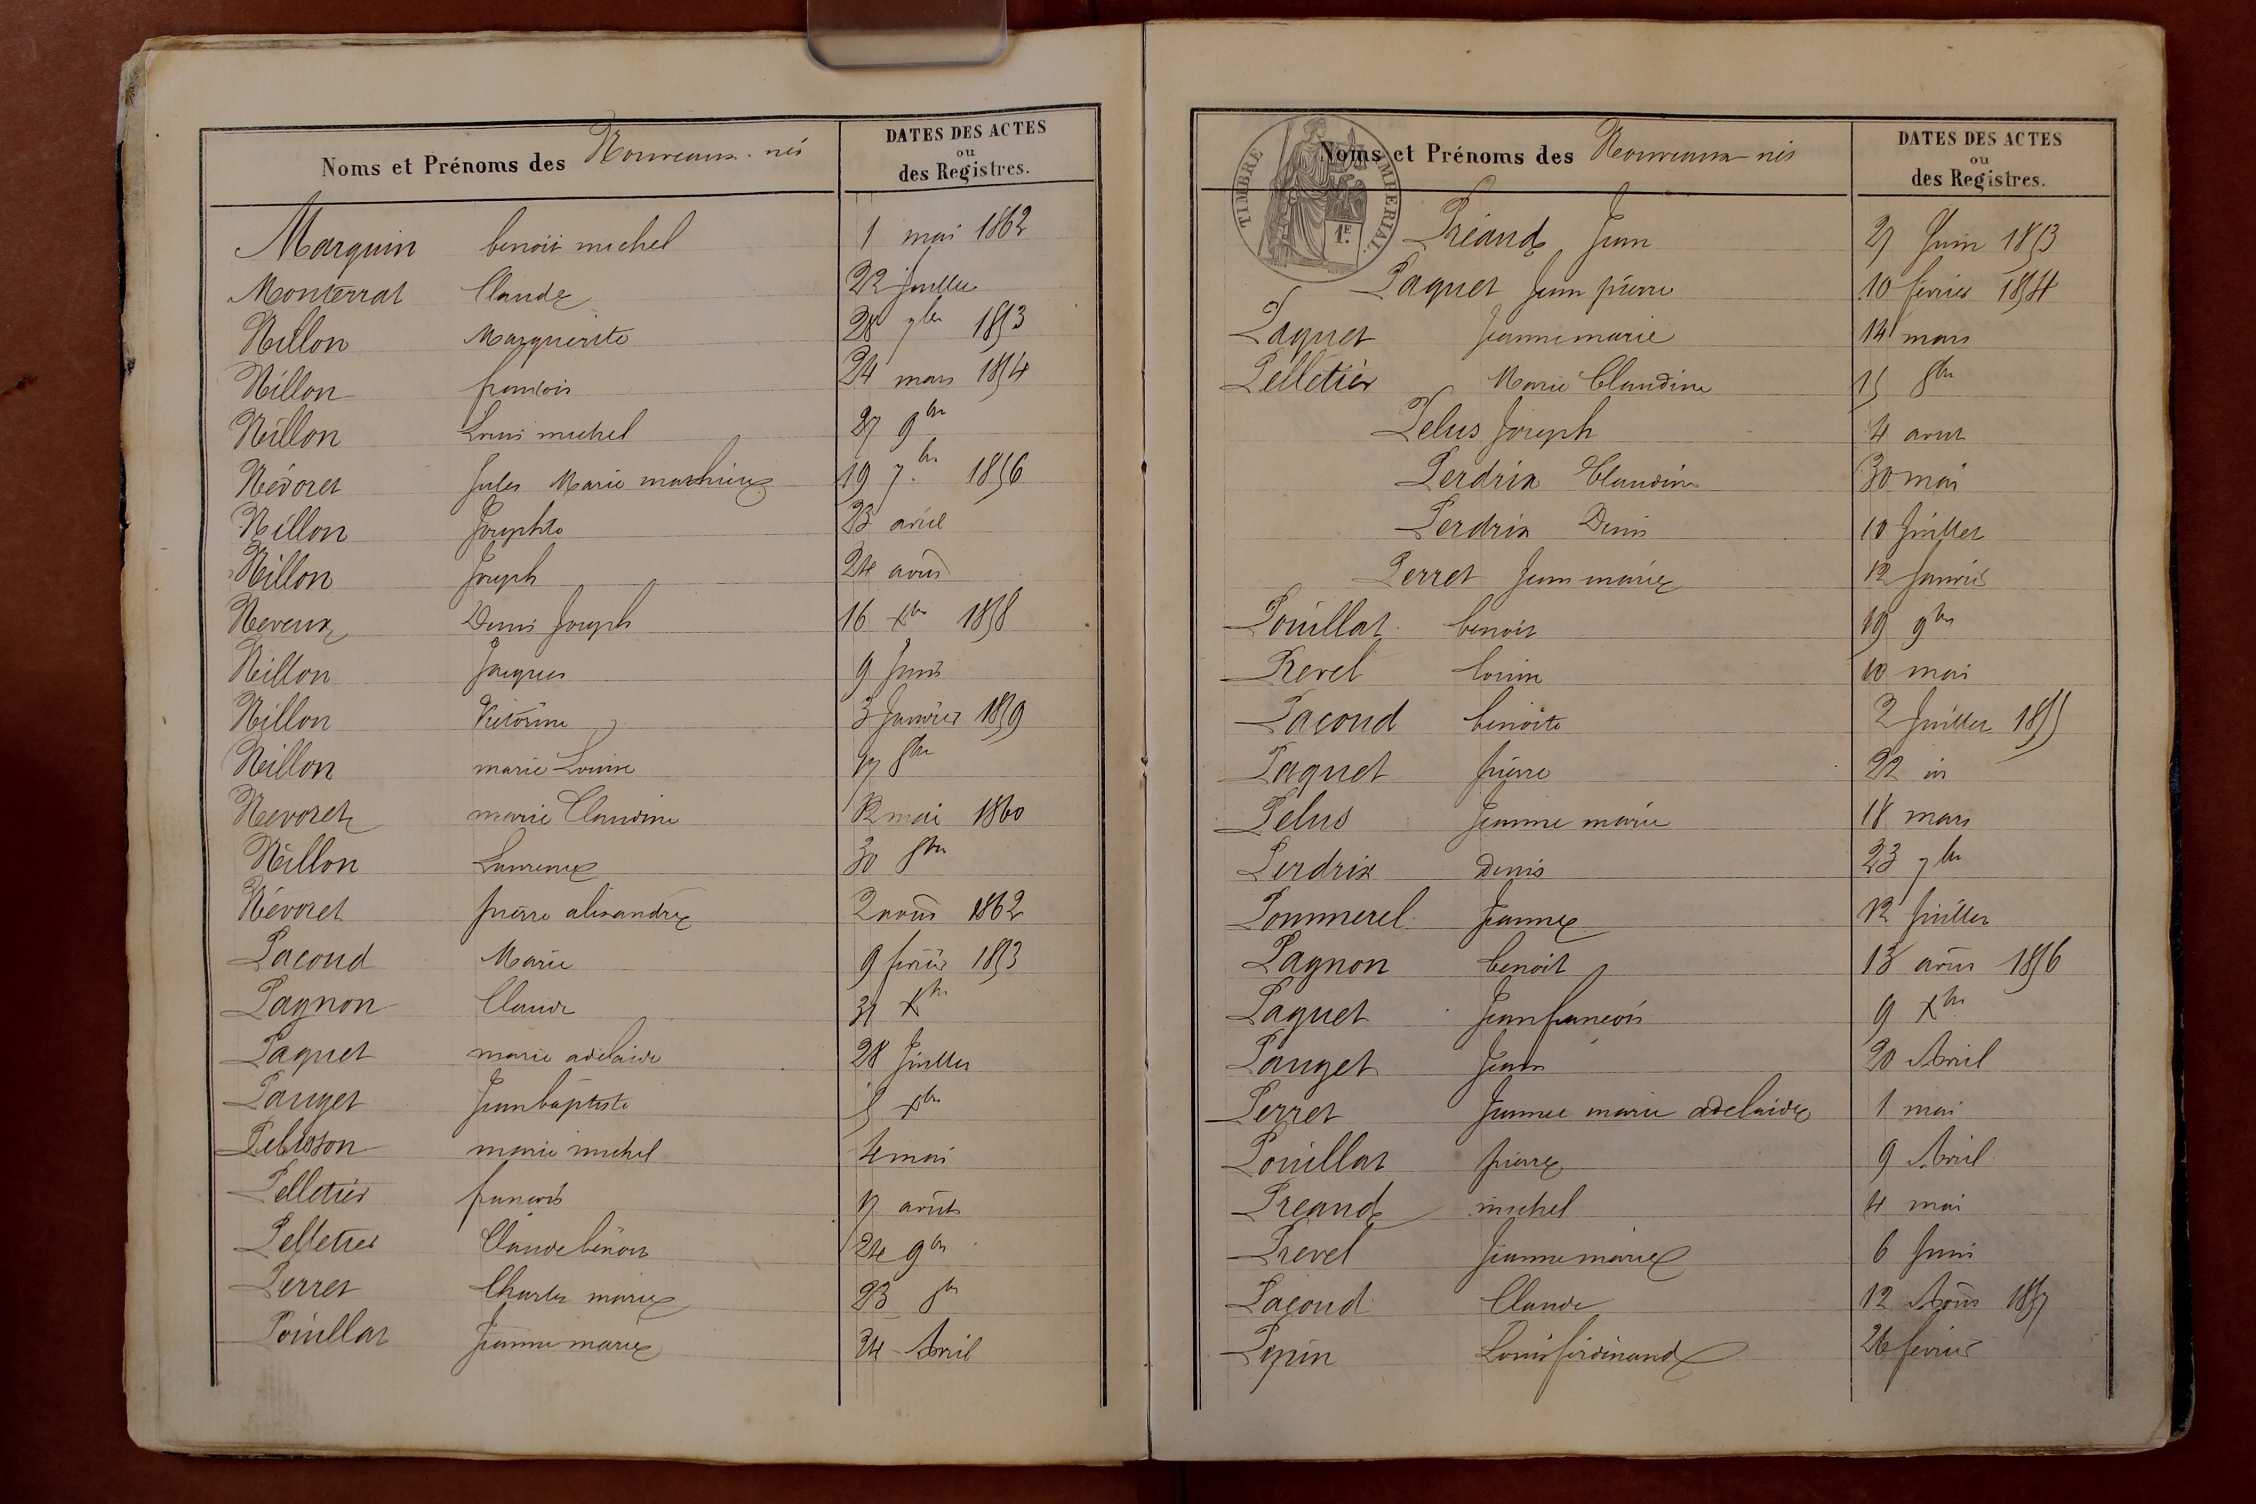 Noms et Prénoms des Nouveaux-nés
DATES DES ACTES
ou
des Registres.
Marquin benoit michel 1 mai 1862
Monterrat Claude 22 Juillet
Nillon Marguerite 28 7bre 1853
Nillon francois 24 mars 1854
Nillon Louis michel 27 9bre
Névoret Jules Marie mathieu 19 7bre 1856
Nillon Josephte 23 avril
Nillon Joseph 24 aout
Neveux Denis Joseph 16 Xbre 1858
Nillon Jacques 9 Juin
Nillon Victorine 3 Janvier 1859
Nillon marie Louise 17 8bre
Nevoret marie Claudine 12 mai 1860
Nillon Laurence 30 8bre
Névoret pierre alexandre 2 aout 1862
Pacoud Marie 9 fevrier 1853
Pagnon Claude 31 Xbre
Paquet marie adelaide 28 Juillet
Pauget Jean baptiste 5 Xbre
Pelisson marie michel 4 mai
Pelletier francois 17 aout
Pelletier Claude benoit 24 9bre
Perret Charles marie 23 8bre
Pouillat Jeanne marie 24 Avril
TIMBRE IMPERIAL.
1F.
Noms et Prénoms des Nouveaux-nés
DATES DES ACTES
ou
des Registres.
Préaud Jean 27 Juin 1853
Paquet Jean pierre 10 fevrier 1854
Paquet Jeanne marie 14 mars
Pelletier Marie Claudine 15 8bre
Pelus Joseph 4 aout
Perdrix Claudine 30 mai
Perdrix Denis 10 Juillet
Perret Jean marie 12 Janvier
Pouillat benoit 19 9bre
Prevel Louise 10 mai
Pacoud benoite 2 Juillet 1855
Paquet pierre 22 id
Pelus Jeanne marie 18 mars
Perdrix Denis 23 7bre
Pommerel Jeanne 12 Juillet
Pagnon benoit 13 aout 1856
Paquet Jean francois 9 Xbre
Pauget Jean 20 Avril
Perret Jeanne marie adelaide 1 mai
Pouillat pierre 9 Avril
Preaud michel 4 mai
Prevel Jeanne marie 6 Juin
Pacoud Claude 12 Aout 1857
Pepin Louis ferdinand 26 fevrier